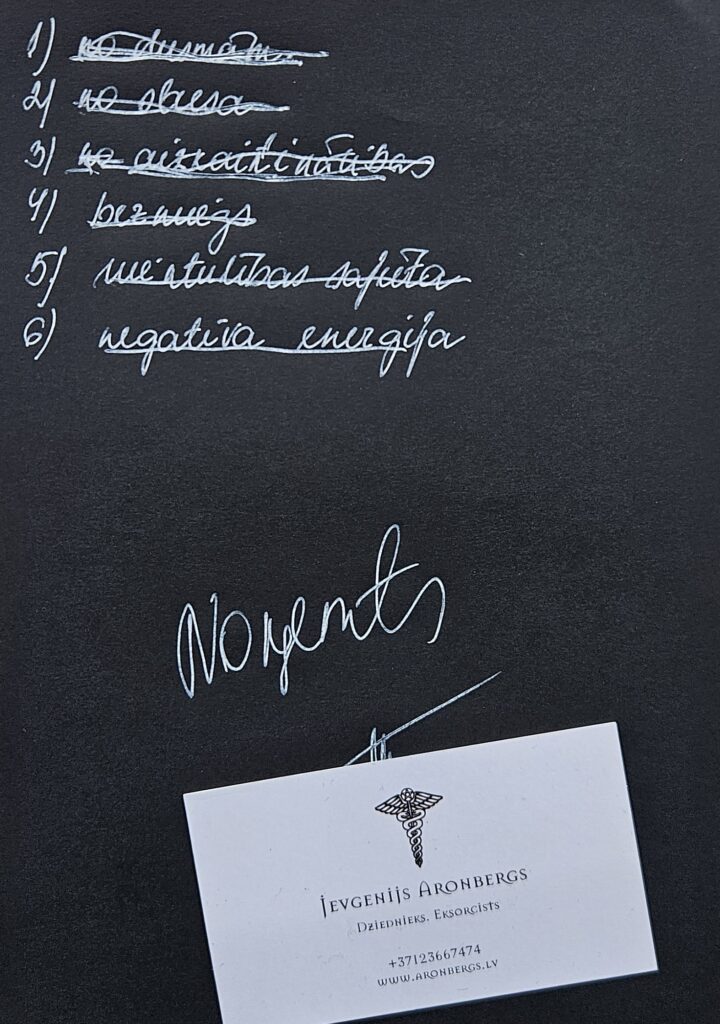 1) no dusmām
2) no stresa
3) no aizkaitināmības
4) bezmiegs
5) vientulības sajūta
6) negatīva enerģija
Noņemts
JEVGENIJS ARONBERGS
DZIEDNIEKS. EKSORCISTS
+37123667474
WWW.ARONBERGS.LV